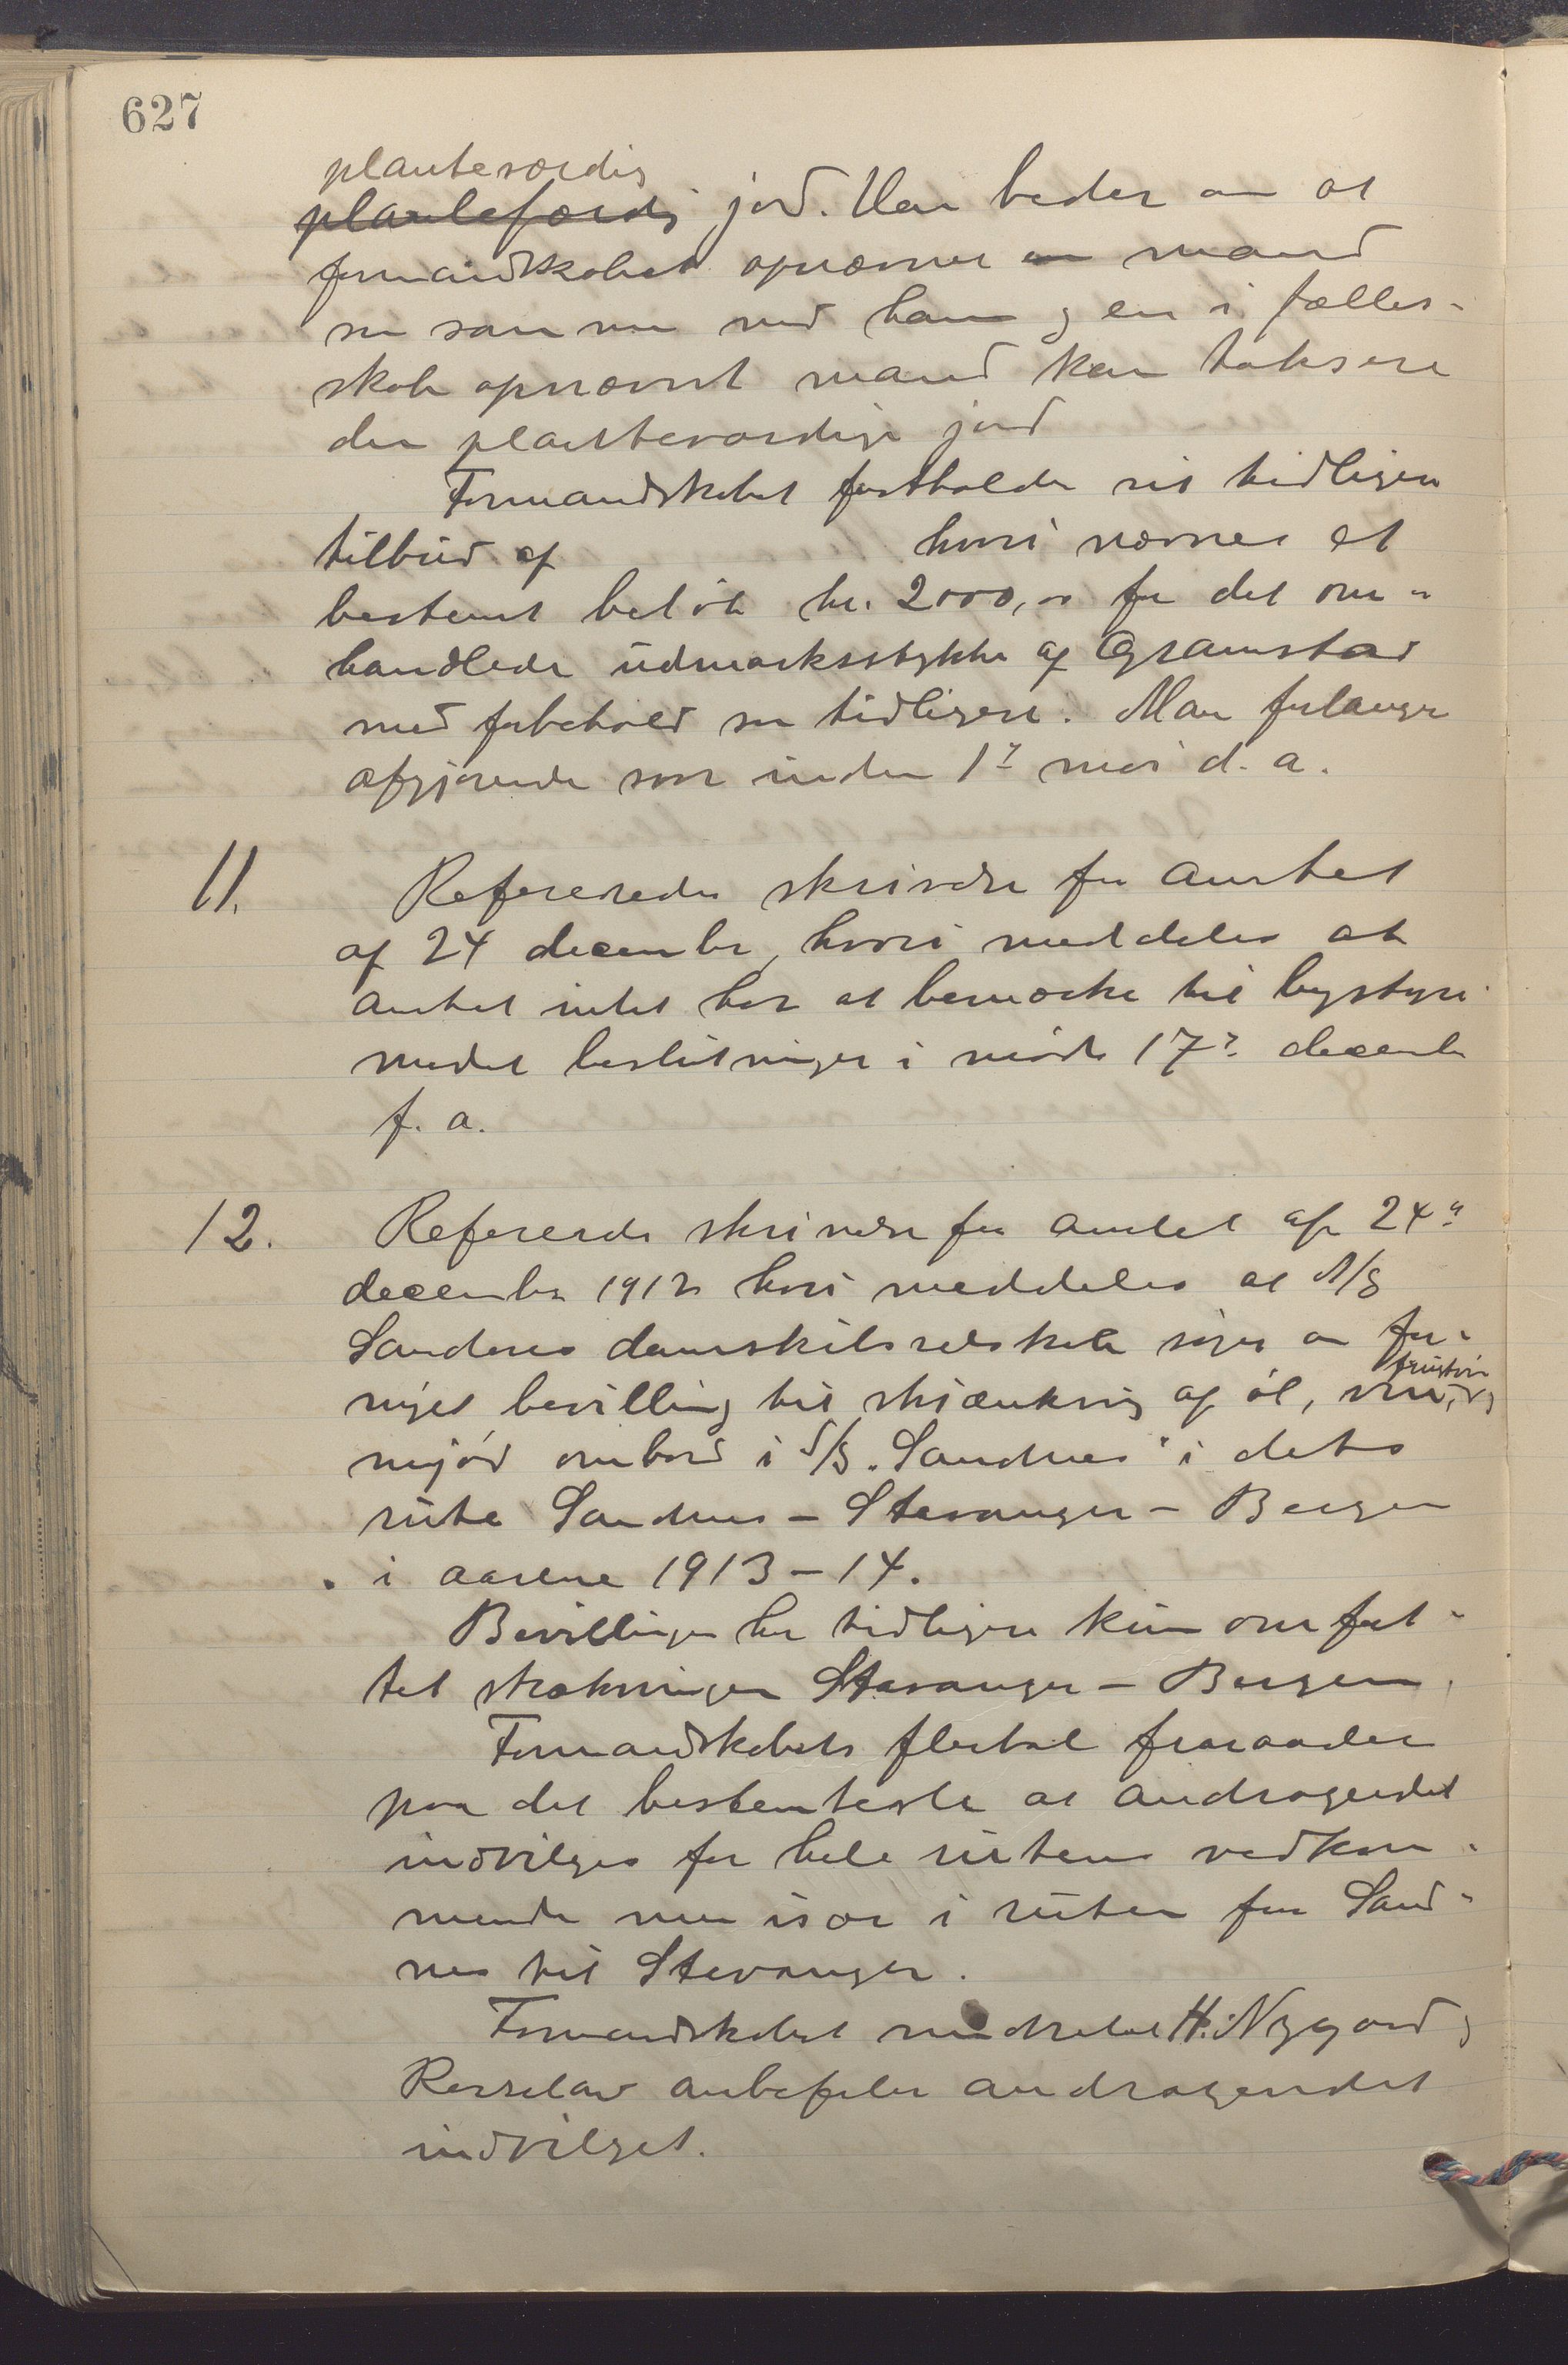 627
planteværdig
plantefærdig jord. Han beder om at
formandskabet opnævner en mand
som sammen med ham og en i fælles-
skab opnævnt mand kan taksere
den planteværdige jord
Formandskabet fastholder sit tidligere
tilbud af hvori nævnes et
bestemt beløb kr. 2000,00 for det om-
handlede udmarksstykke af Gramstad
med forbehold som tidligere. Man forlanger
afgjørende svar inden 1ste mai d. a.
11. Refereredes skrivelse fra amtet
af 24 december, hvori meddeles at
amtet intet har at bemærke til bystyre
mødet beslutninger i møde 17de december
f. a.
12. Refereredes skrivelse fra amtet af 24de
december 1912 hvori meddeles at A/S
Sandnes dampskibsselskab søger om for-
nyet bevilling til skjænkning af øl, vin, frugtvin og
mjød ombord i D/S "Sandnes" i dets
rute Sandnes - Stavanger - Bergen
i aarene 1913-14.
Bevillingen har tidligere kun omfat-
tet strækningen Stavanger - Bergen.
Formandskabets flertal fraraader
paa det bestemteste at andragendet
indvilges for hele rutens vedkom-
mende men især i ruten fra Sand-
nes til Stavanger.
Formandskabet mindretal H. Nygaard og
Rosseland anbefaler andragendet
indvilget.